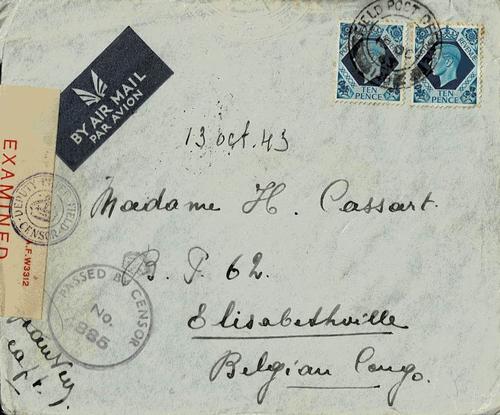 FIELD POST OFFICE
TEN PENCE
TEN PENCE
BY AIR MAIL
PAR AVION
13 oct. 43
EXAMINED
DEPUTY CHIEF FIELD CENSOR
A.F.W3312
Madame H. Cassart.
B. P. 62.
Elisabethville
Belgian Congo.
PASSED BY CENSOR
No.
885
capt.